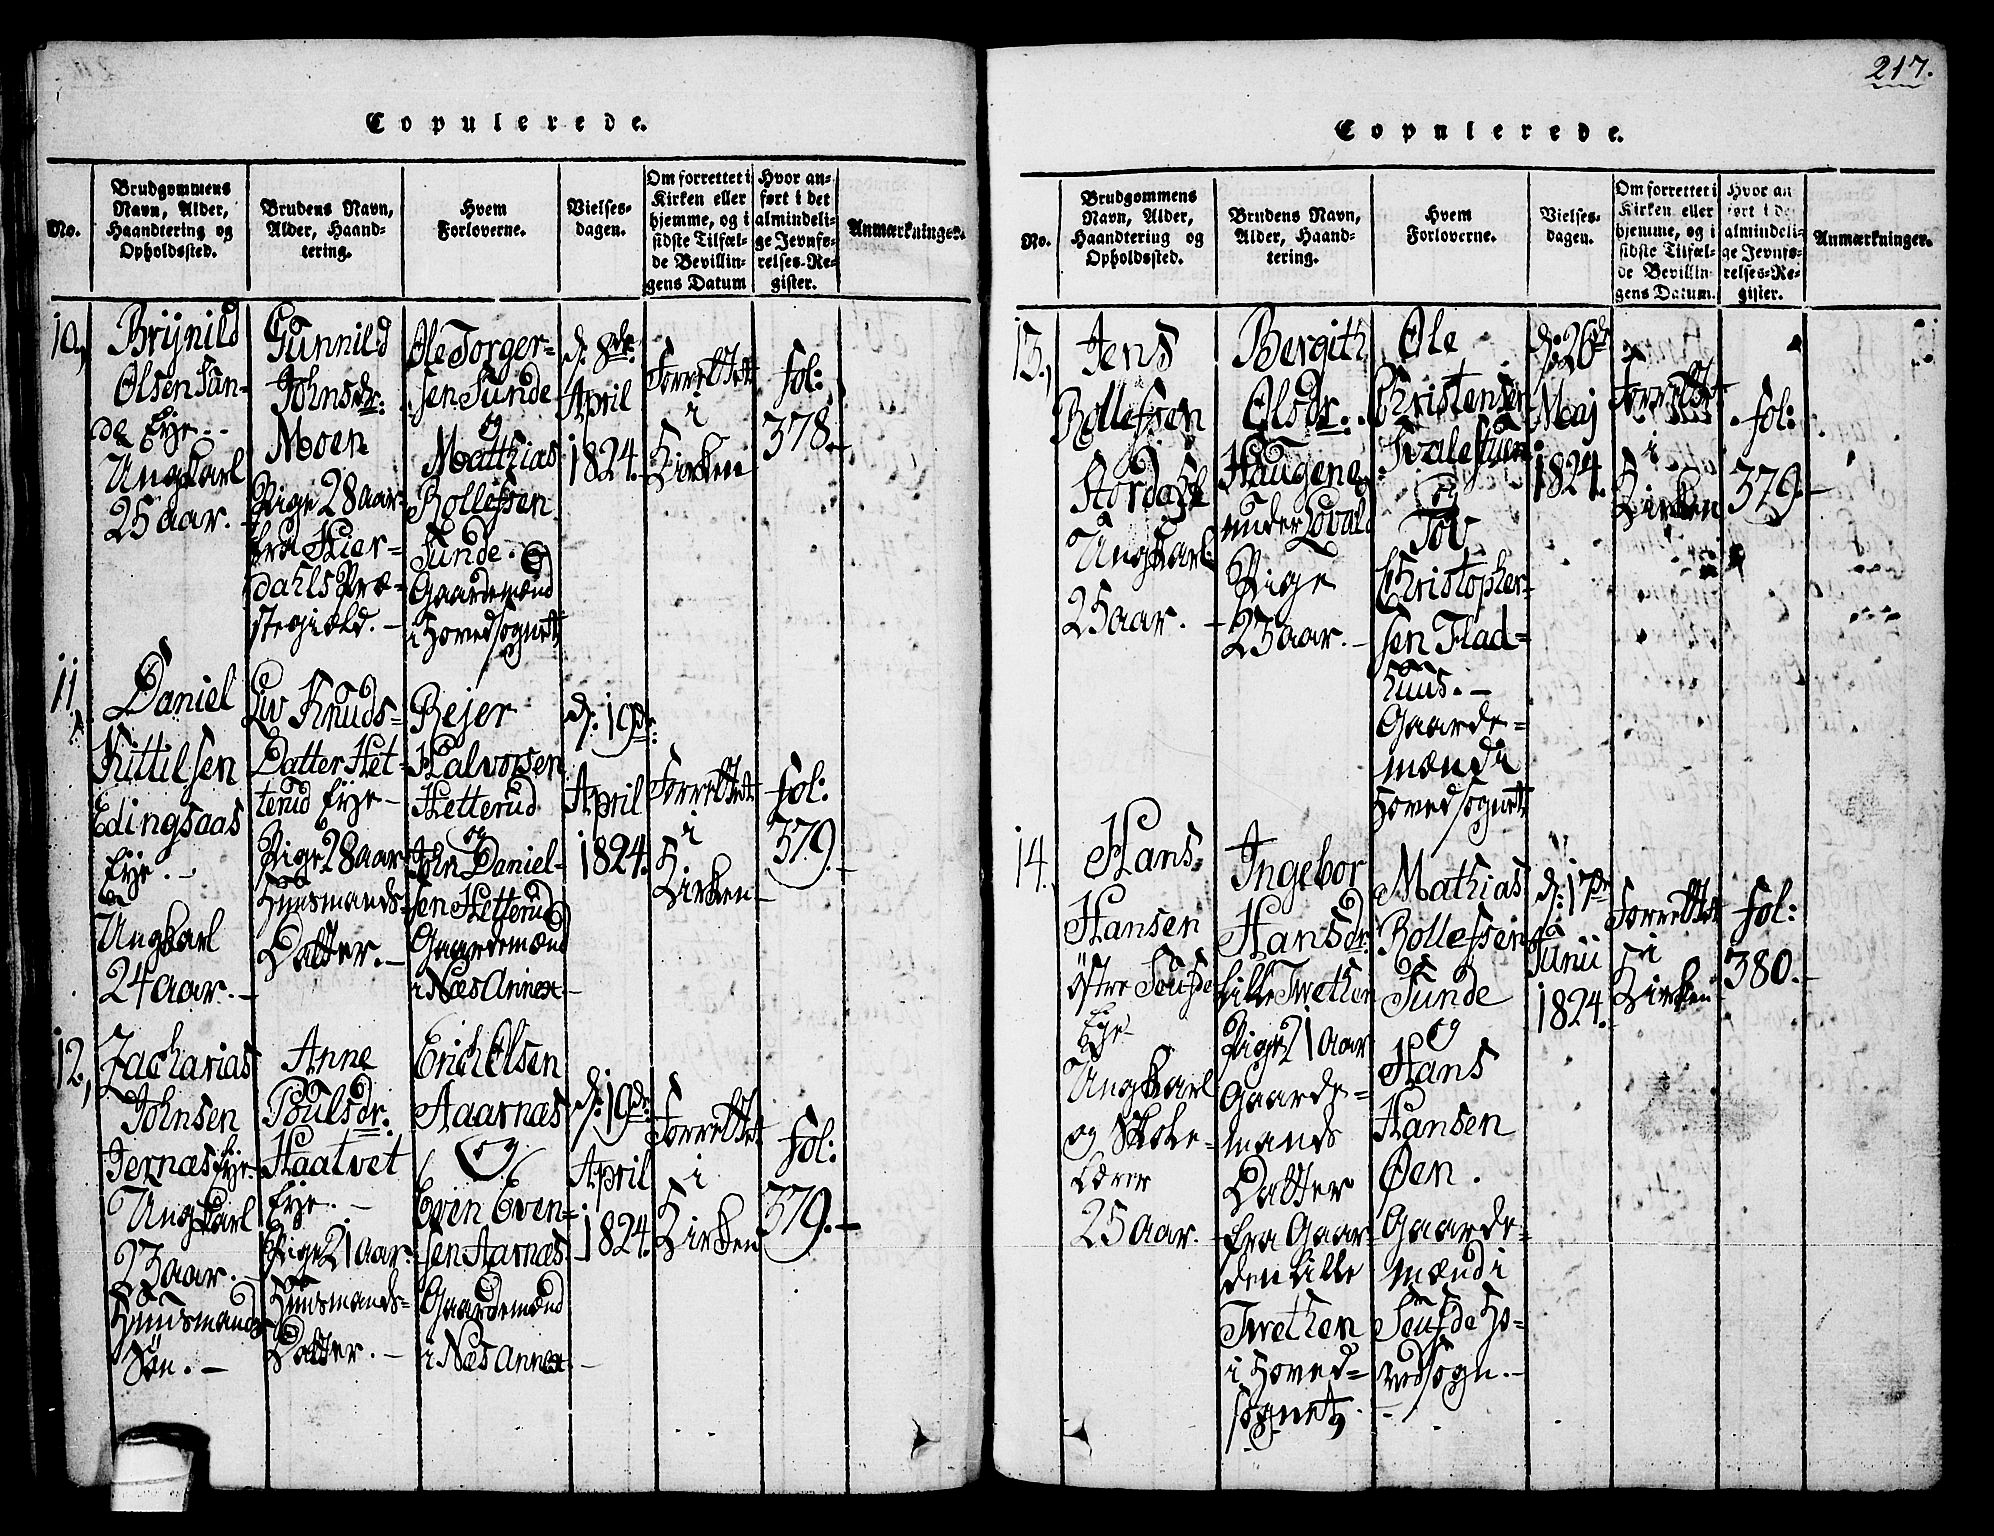 Copulerede.
No.
Brudgommens
Navn, Alder,
Haandtering og
Opholdssted.
Brudens Navn,
Alder, Haand-
tering.
Hvem
Forloverne.
Vielses-
dagen.
Om forrettet i
Kirken eller
hjemme, og i
sidste Tilfæl-
de Bevillin-
gens Datum
Hvor an-
ført i det
almindeli-
ge Jevnfø-
relses-Re-
gister.
Anmærkninger.
10,
Brijnild
Olsen Sun-
de Eye.
Ungkarl
25 aar.
Gunnild
Johnsdr:
Moen
Pige 28 aar
fra Hier-
dahls Præ-
stegiæld.
Ole Torger-
sen Sunde
og
Matthias
Rollefsen
Sunde.
Gaardemænd
i Hovedsognet
d: 8de
April
1824.
Forrettet
i
Kirken
fol:
378.
11,
Daniel
Kittilsen
Edingsaas
Eye.
Ungkarl
24 aar.
Liv Knuds-
Datter Het-
terud Eye
Pige 28 aar
Huusmands-
Datter.
Rejer
Halvorsen
Hetterud
og
John Daniel-
sen Hetterud
Gaardemænd
i Næs Annex
d: 19de:
April
1824.
Forrettet
i
Kirken
fol:
379.
12,
Zacharias
Johnsen
Jernæs Eye
Ungkarl
23 aar.
Huusmands
Søn.
Anne
Poulsdr:
Haatvet
Eye.
Pige 21 aar.
Huusmands-
Datter.
Erich Olsen
Aarnæs
og
Even Even-
sen Aarnæs
Gaardemænd
i Næs Annex
d: 19de
April
1824.
Forrettet
i
Kirken
fol:
379.
217.
Copulerede.
No.
Brudgommens
Navn, Alder,
Haandtering og
Opholdssted.
Brudens Navn,
Alder, Haand-
tering.
Hvem
Forloverne.
Vielses-
dagen.
Om forrettet i
Kirken eller
hjemme, og i
sidste Tilfæl-
de Bevillin-
gens Datum.
Hvor an
ført i de
almindeli-
ge Jevnfø-
relses-Re-
gister.
Anmærkninger.
13.,
Jens
Rollefsen
Ungkarl
25 aar.
Bergith
Olsdr.
Haugene
under Lovald
Pige
23 aar.
Ole
Christensen
Tvalestuen
og
Tov
Christopher-
sen Flad-
huus.
Gaarde-
mænd i
Hovedsognet
d: 26de
Maj
1824.
Forrettet
i
Kirken
fol:
379.
14.,
Hans
Hansen
Østre Seufde
Eye
Ungkarl
og Skole-
Lærer
25 aar.
Ingebor
Hansdr:
Lille Twethen
Pige 21 aar
Gaarde-
mands
Datter
fra Gaar-
den Lille
Twethen
i Hoved-
sognet,
Mathias
Rollefsen
Sunde
og
Hans
Hansen
Øen.
Gaarde-
mænd i
Seufde Ho-
vedsogn.
d: 17de
Junii
1824.
Forrettet
i
Kirken
fol:
380.